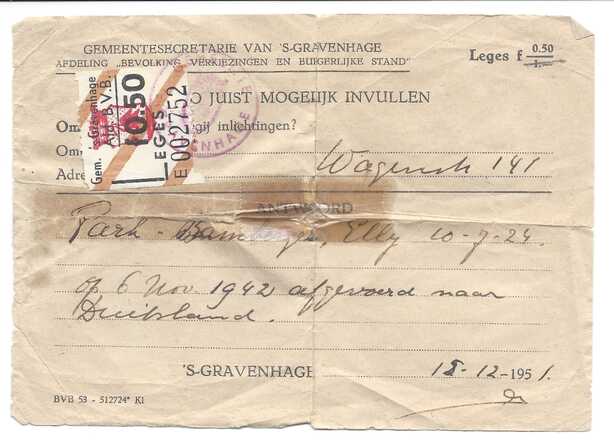 GEMEENTESECRETARIE VAN 'S-GRAVENHAGE
AFDELING „BEVOLKING, VERKIEZINGEN EN BURGERLIJKE STAND"
Leges f 0.50
1.—
Gem. 's-Gravenhage
Afd. B.V.B.
f0.50
LEGES
E 002752
ENHAGE
O JUIST MOGELIJK INVULLEN
Om gij inlichtingen?
Om
Adre Wagenstr 141
ANTWOORD
Park - Bam Elly 10-7-24.
op 6 Nov 1942 afgevoerd naar
Duitsland.
'S-GRAVENHAGE 18-12-1951.
BVB 53 - 512724* K1